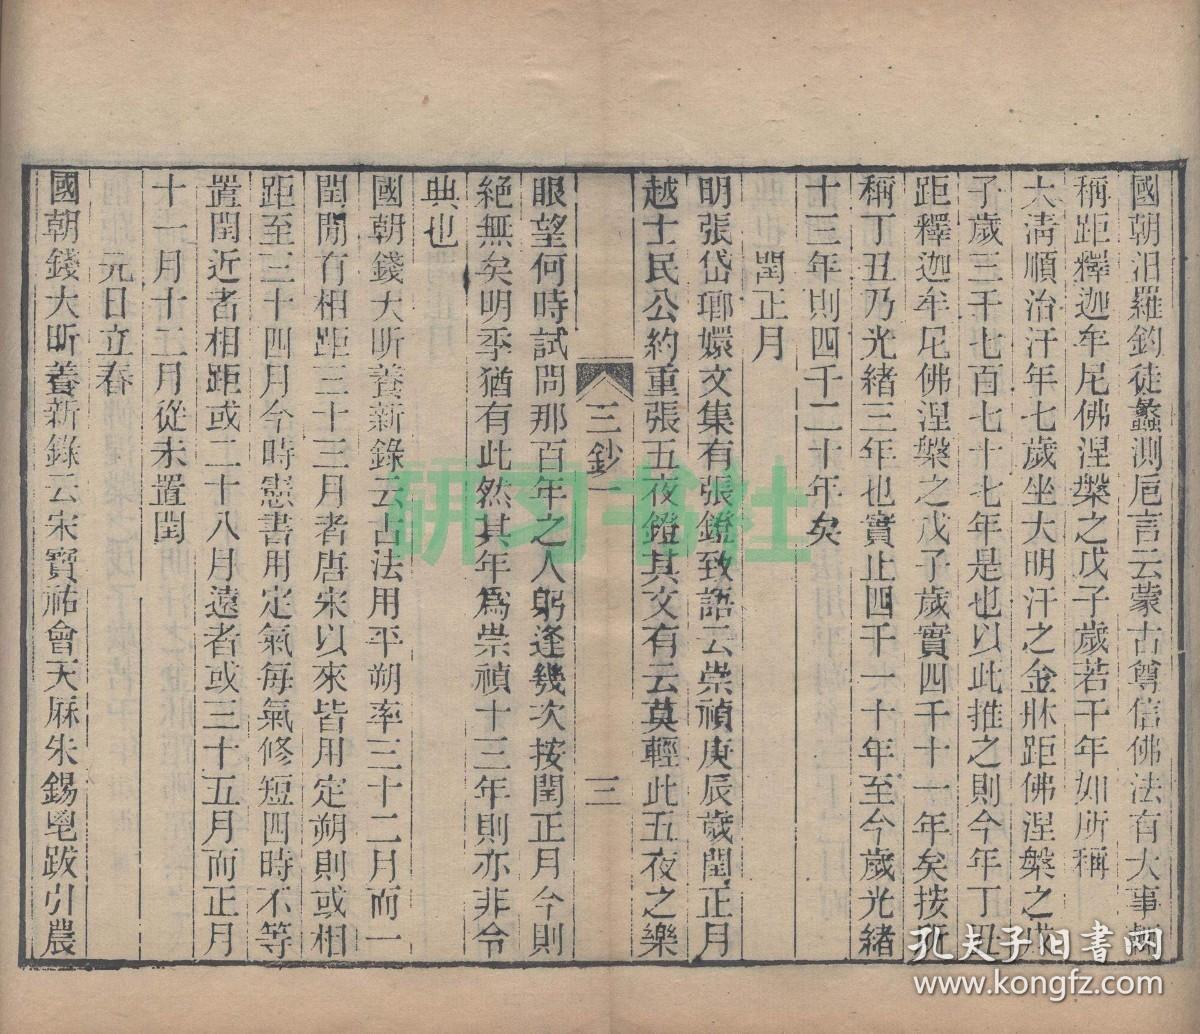 國朝汨羅釣徒蠡測卮言云蒙古尊信佛法有大事輒
稱距釋迦牟尼佛涅槃之戊子歲若干年如所稱
大淸順治汗年七歲坐大明汗之金牀距佛涅槃之戊
子歲三千七百七十七年是也以此推之則今年丁丑
距釋迦牟尼佛涅槃之戊子歲實四千十一年矣按所
稱丁丑乃光緒三年也實止四千一十年至今歲光緒
十三年則四千二十年矣
閏正月
明張岱瑯嬛文集有張鐙致語云崇禎庚辰歲閏正月
越士民公約重張五夜鐙其文有云莫輕此五夜之樂
三鈔一
三
眼望何時試問那百年之人躬逢幾次按閏正月今則
絕無矣明季猶有此然其年爲崇禎十三年則亦非令
典也
國朝錢大昕養新錄云古法用平朔率三十二月而一
閏閒有相距三十三月者唐宋以來皆用定朔則或相
距至三十四月今時憲書用定氣每氣修短四時不等
置閏近者相距或二十八月遠者或三十五月而正月
十一月十二月從未置閏
元日立春
國朝錢大昕養新錄云宋寶祐會天厤朱錫鬯跋引農
研习书社
孔夫子旧书网
www.kongfz.com